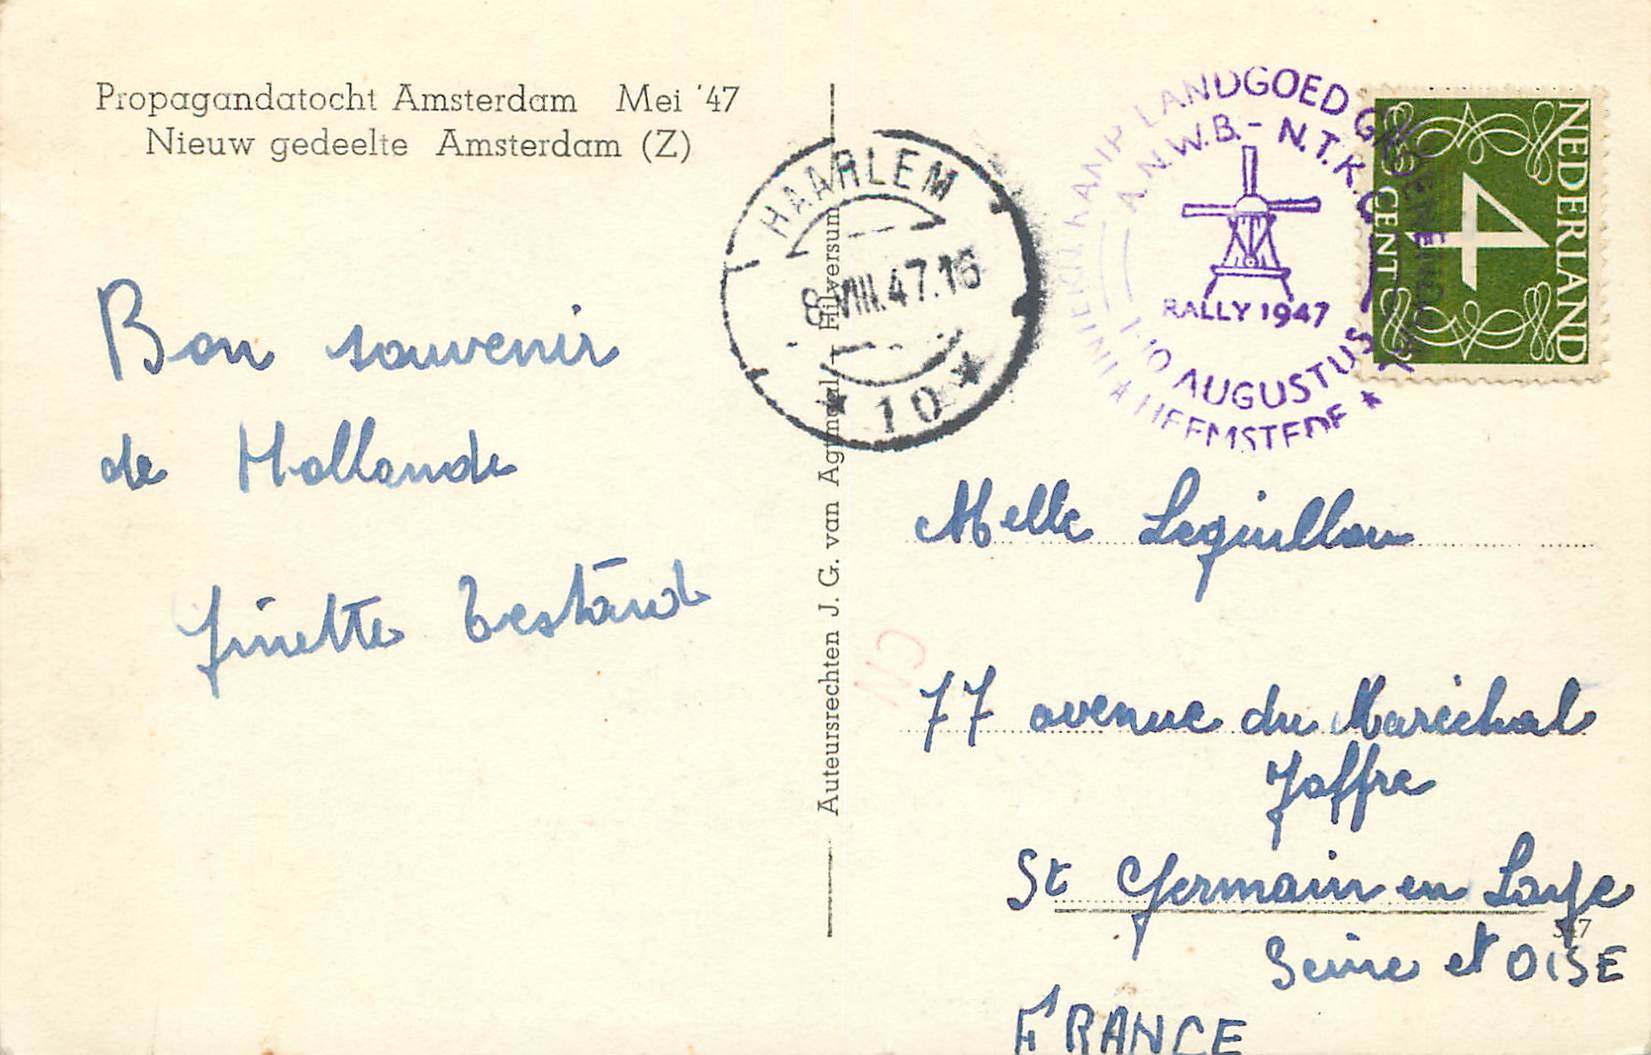 Propagandatocht Amsterdam Mei '47
Nieuw gedeelte Amsterdam (Z)
Bon souvenir
de Hollande
Ginette Testard
Auteursrechten J. G. van Agtmaal - Hilversum
HAARLEM
8.VIII.47.16
★ 10 ★
KAMP LANDGOED GROENENDAAL
A.N.W.B.-N.T.K.C.
RALLY 1947
1-10 AUGUSTUS
HEEMSTEDE ★
NEDERLAND
4
CENT
Melle Leguillou
77 avenue du Maréchal
Joffre
St Germain en Laye
Seine et OISE
FRANCE